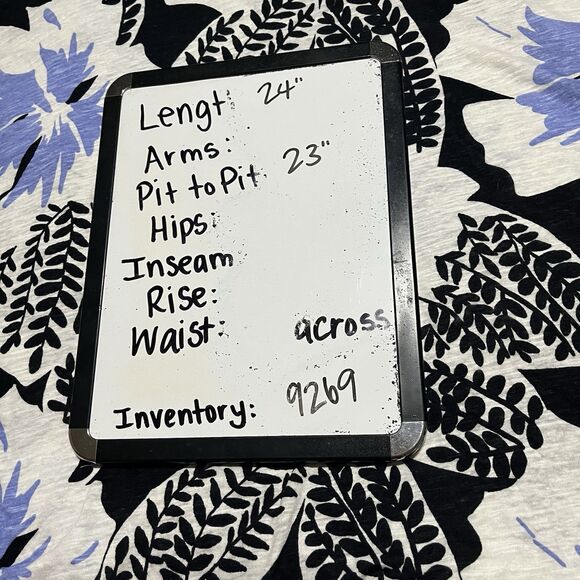 Lengt: 24"
Arms:
Pit to Pit 23"
Hips:
Inseam
Rise:
Waist: across
Inventory: 9269